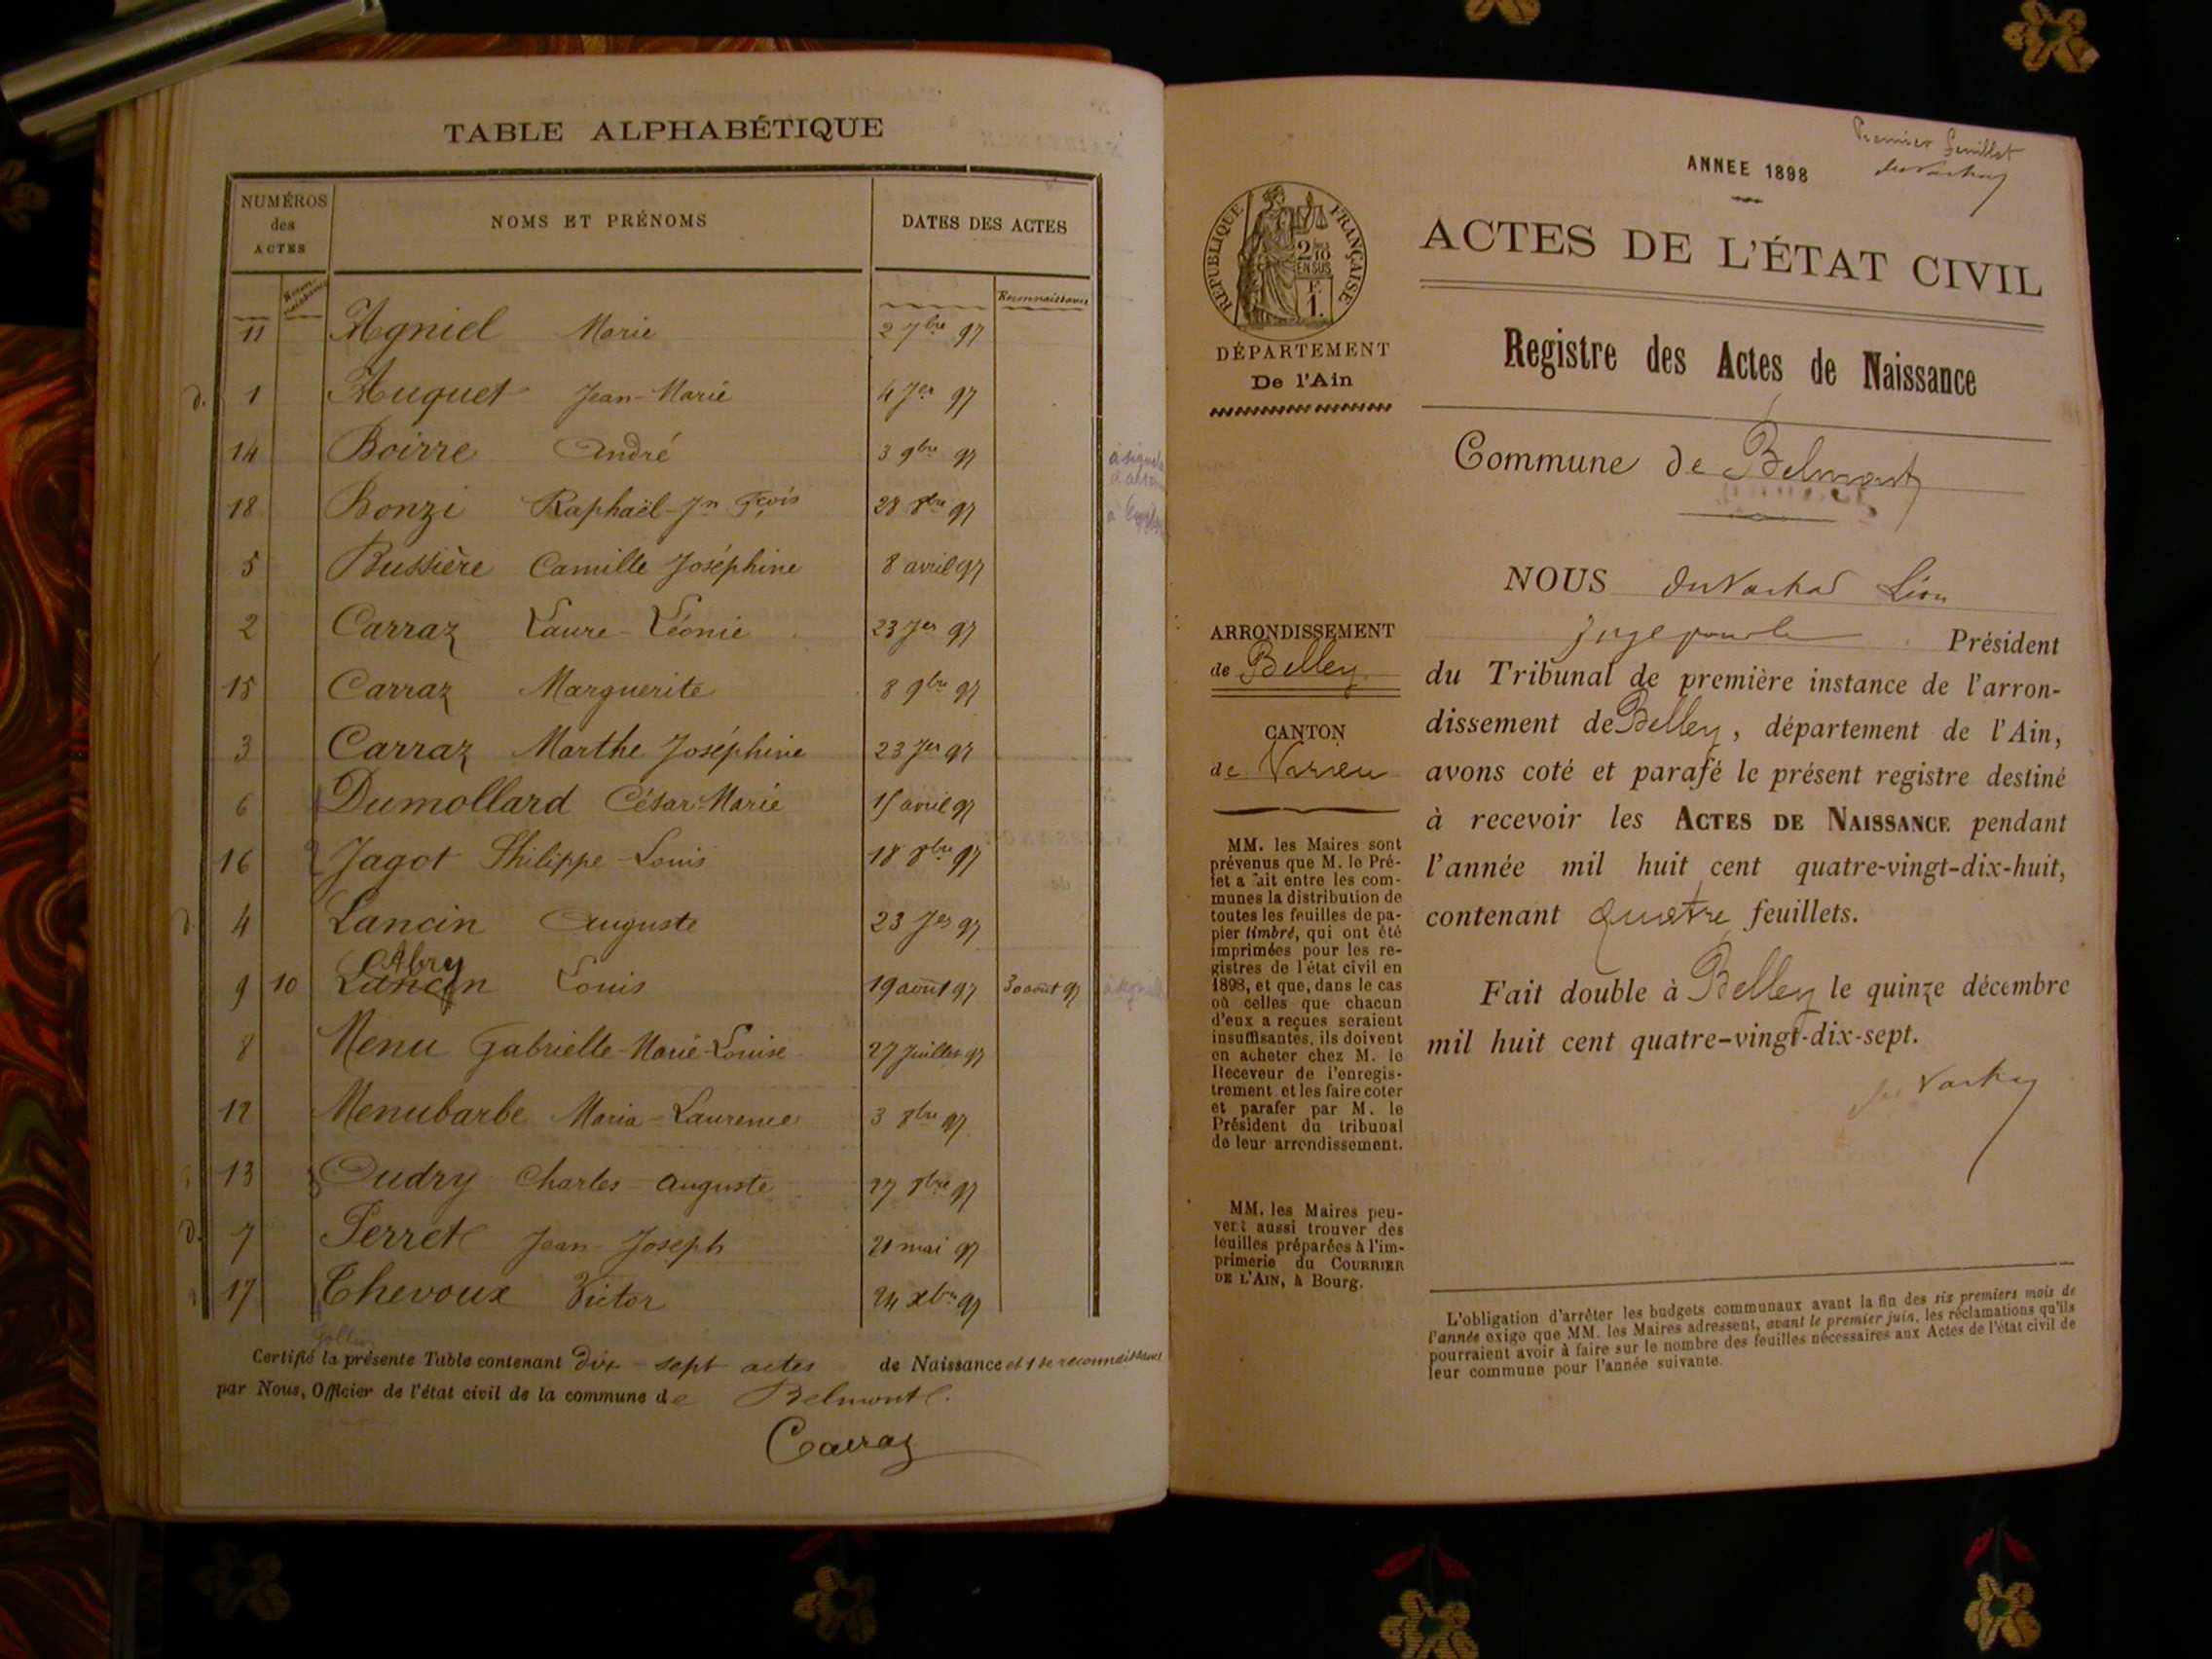 TABLE ALPHABÉTIQUE
NUMÉROS des ACTES
NOMS ET PRÉNOMS
DATES DES ACTES
Reconnaissance
11 Agniel Marie 2 7bre 97
d. 1 Huguet Jean-Marie 4 Jer 97
14 Boirre André 3 9bre 97
18 Bonzi Raphaël-Jn Fçois 28 xbre 97
5 Bussière Camille Joséphine 8 avril 97
2 Carraz Laure-Léonie 23 Jer 97
15 Carraz Marguerite 8 9bre 97
3 Carraz Marthe Joséphine 23 Jer 97
6 Dumollard César-Marie 15 avril 97
16 Jagot Philippe-Louis 18 xbre 97
d. 4 Lancin Auguste 23 Jer 97
Abry
9 10 Lancin Louis 19 août 97 30 août 97
8 Menu Gabrielle-Marie-Louise 27 Juillet 97
12 Menubarbe Maria-Laurence 3 8bre 97
13 Oudry Charles Auguste 27 8bre 97
d. 7 Perret Jean-Joseph 21 mai 97
17 Thevoux Victor 24 xbre 97
Certifié la présente Table contenant dix-sept actes de Naissance et 1 de reconnaissance
par Nous, Officier de l'état civil de la commune de Belmont.
Carraz
Premier feuillet
ANNEE 1898
ACTES DE L'ÉTAT CIVIL
Registre des Actes de Naissance
Commune de Belmont
RÉPUBLIQUE FRANÇAISE
2/10 EN SUS
F. 1.
DÉPARTEMENT
De l'Ain
ARRONDISSEMENT
de Belley
CANTON
de Virieu
MM. les Maires sont
prévenus que M. le Pré-
fet a fait entre les com-
munes la distribution de
toutes les feuilles de pa-
pier timbré, qui ont été
imprimées pour les re-
gistres de l'état civil en
1898, et que, dans le cas
où celles que chacun
d'eux a reçues seraient
insuffisantes, ils doivent
en acheter chez M. le
Receveur de l'enregis-
trement et les faire coter
et parafer par M. le
Président du tribunal
de leur arrondissement.
MM. les Maires peu-
vent aussi trouver des
feuilles préparées à l'im-
primerie du COURRIER
DE L'AIN, à Bourg.
NOUS Léon
juge pour le Président
du Tribunal de première instance de l'arron-
dissement de Belley, département de l'Ain,
avons coté et parafé le présent registre destiné
à recevoir les ACTES DE NAISSANCE pendant
l'année mil huit cent quatre-vingt-dix-huit,
contenant quatre feuillets.
Fait double à Belley le quinze décembre
mil huit cent quatre-vingt-dix-sept.
L'obligation d'arrêter les budgets communaux avant la fin des six premiers mois de
l'année exige que MM. les Maires adressent, avant le premier juin, les réclamations qu'ils
pourraient avoir à faire sur le nombre des feuilles nécessaires aux Actes de l'état civil de
leur commune pour l'année suivante.